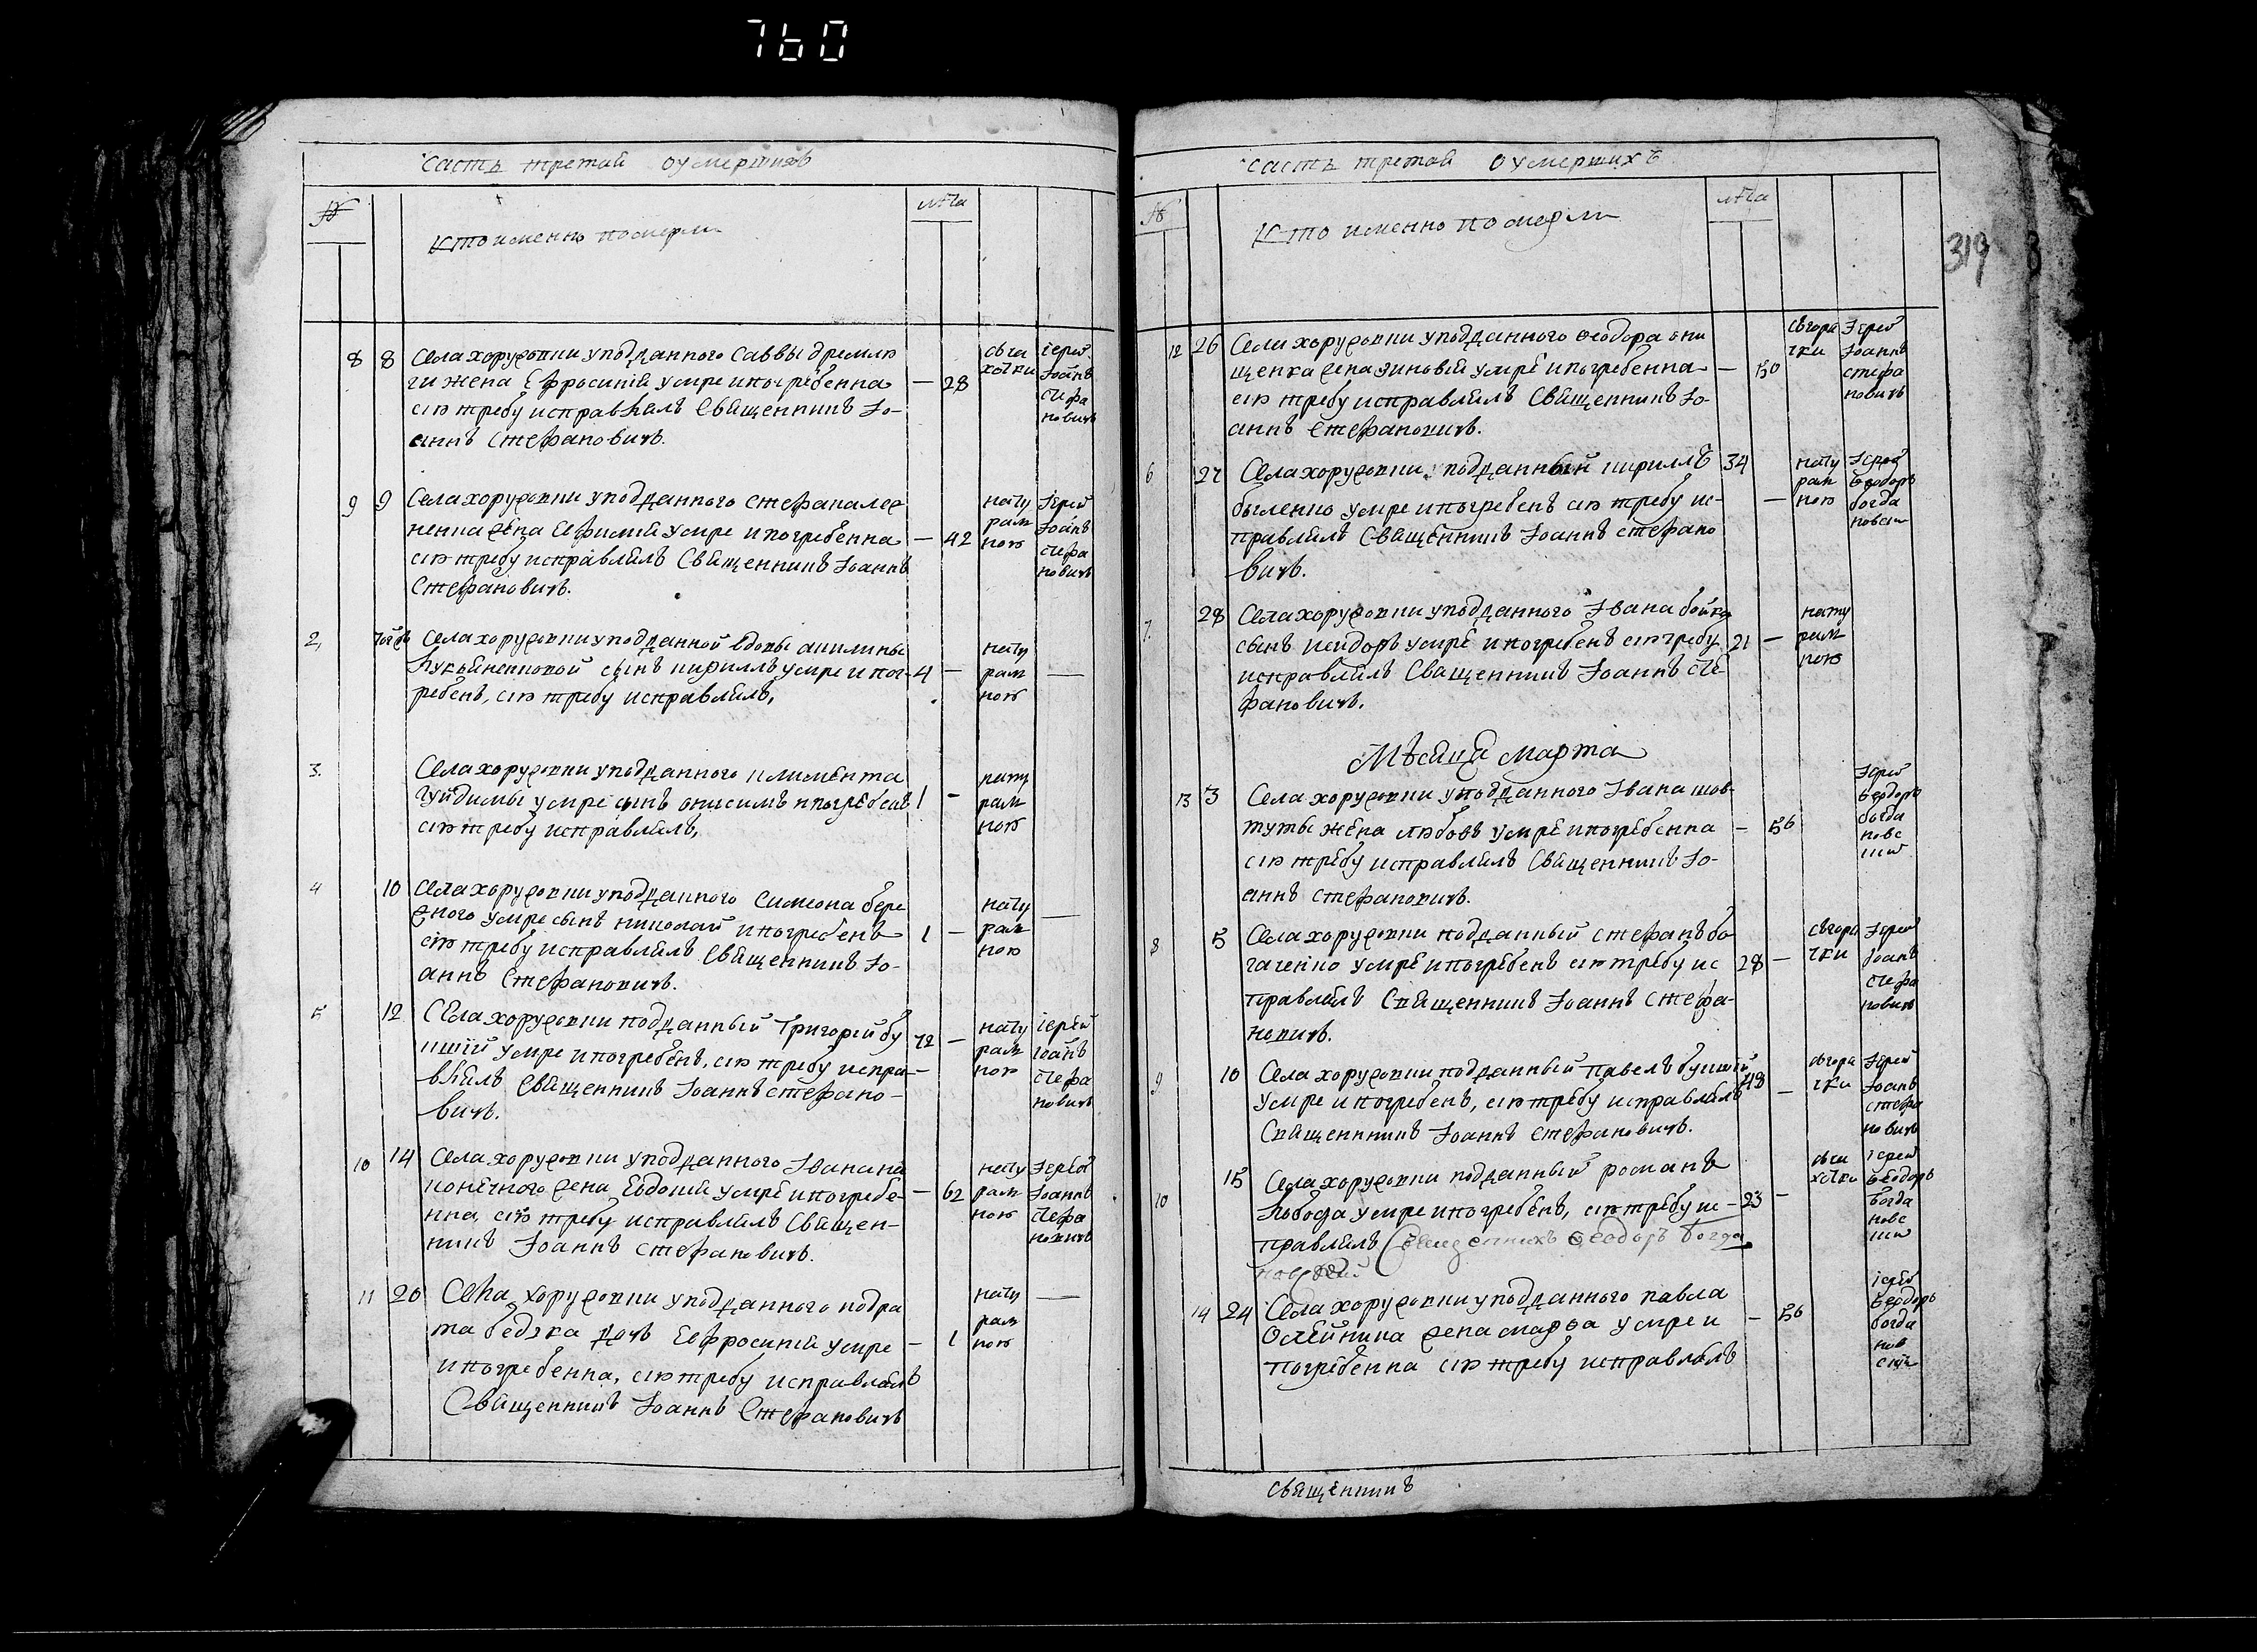 760
часть третая о умершихъ
№
лѣта
кто именно померли
8 8 Села хоружовки у подданного Саввы дремлю
ги жена Ефросиния умре и погребенна — 28
сию требу исправлялъ Священникъ Іо-
аннъ Стефановичъ.
съ су
хотки
іерей
Іоаннъ
Стефа
новичъ
9 9 Села хоружовки у подданного Стефана
жена Евфимия умре и погребенна — 42
сию требу исправлялъ Священникъ Іоаннъ
Стефановичъ.
нату
рал
ною
Іерей
Іоаннъ
Стефа
новичъ
2, Села хоружовки у подданной вдовы акилины
Лукьяненковой сынъ кириллъ умре и пог- 4 —
ребенъ, сию требу исправлялъ,
нату
рал
ною
3. Села хоружовки у подданного климента
гуйдимы умре сынъ онисимъ и погребенъ 1 —
сию требу исправлялъ,
нату
рал
ною
4 10 Села хоружовки у подданного Симеона бере
жного умре сынъ николай и погребенъ 1 —
сию требу исправлялъ Священникъ Іо-
аннъ Стефановичъ.
нату
рал
ною
5 12 Села хоружовки подданный Григорий бу
цкий умре и погребенъ, сию требу испра- 72 —
влялъ Священникъ Іоаннъ Стефано-
вичъ.
нату
рал
ною
іерей
іоаннъ
Стефа
новичъ
10 14 Села хоружовки у подданного Ивана на
конечного жена Евдокия умре и погребе- — 62
нна, сию требу исправлялъ Священ-
никъ Іоаннъ Стефановичъ.
нату
рал
ною
Іерей
Іоаннъ
Стефа
новичъ
11 20 Села хоружовки у подданного кодра
та бедзка дочь Евфросиния умре — 1
и погребенна, сию требу исправлялъ
Священникъ Іоаннъ Стефановичъ
нату
рал
ною
часть третая о умершихъ
№
лѣта
Кто именно померли
319
12 26 Села хоружовки у подданного Феодора они
щенка жена зиновия умре и погребенна — 50
сию требу исправлялъ Священникъ Іо-
аннъ Стефановичъ.
съ горя
чки
Іерей
Іоаннъ
стефа
новичъ
6 27 Села хоружовки подданный кириллъ 34
быленко умре и погребенъ сию требу ис- —
правлялъ Священникъ Іоаннъ стефано
вичъ.
нату
рал
ною
Іерей
Феодоръ
богда
новск
7. 28 Села хоружовки у подданного Ивана бойка
сынъ исидоръ умре и погребенъ сию требу 21 —
исправлялъ Священникъ Іоаннъ Сте
фановичъ.
нату
рал
ною
Мѣсяцъ марта
13 3 Села хоружовки у подданного Ивана шов-
туты жена любовь умре и погребенна — 56
сию требу исправлялъ Священникъ Іо-
аннъ стефановичъ.
Іерей
Феодоръ
богда
новс
кий
8 5 Села хоружовки подданный стефанъ бо
гаченко умре и погребенъ сию требу ис 28 —
правлялъ Священникъ Іоаннъ Стефа-
новичъ.
съ горя
чки
Іерей
Іоаннъ
Стефа
новичъ
9 10 Села хоружовки подданный павелъ буцкий 48
умре и погребенъ, сию требу исправлялъ —
Священникъ Іоаннъ Стефановичъ.
съ горя
чки
Іерей
Іоаннъ
стефа
новичъ
10 15 Села хоружовки подданный романъ
Лобода умре и погребенъ, сию требу ис- 23 —
правлялъ Священникъ Феодоръ Богда
новский
съ су
хотки
іерей
Феодоръ
богда
новс
кий
14 24 Села хоружовки у подданного павла
Олейника жена марфа умре и — 56
погребенна сию требу исправлялъ
іерей
Феодоръ
богда
нов
ский
священникъ